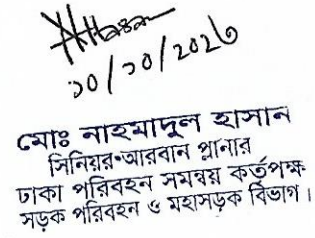 ১০/১০/২০২৩
মোঃ নাহমাদুল হাসান
সিনিয়র আরবান প্লানার
ঢাকা পরিবহন সমন্বয় কর্তৃপক্ষ
সড়ক পরিবহন ও মহাসড়ক বিভাগ।